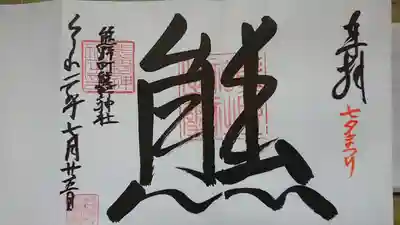 奉拝
七夕まつり
熊
熊野町熊野神社
令和二年七月廿五日